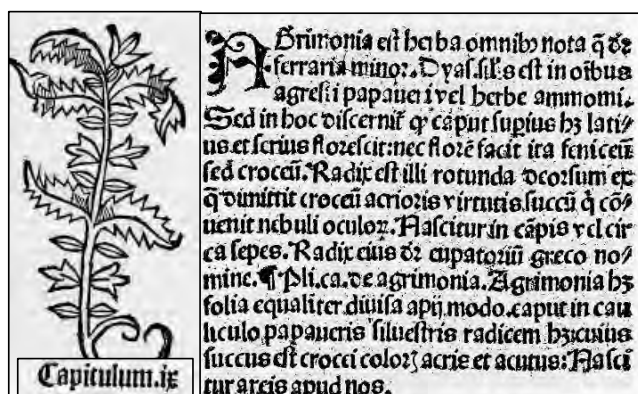 Capitulum.ix
AGrimonia est herba omnibꝰ nota q̄ dr̄
ferraria minor. Dyas. sil's est in oībus
agresti papaueri vel herbe ammomi.
Sed in hoc discernit̃ qꝫ caput supius hꝫ lati/
us. et serius florescit: nec florē facit ita feniceū
sed croceū. Radix est illi rotunda deorsum ex
q̄ dimittit croceū acrioris virtutis succū q̇ cō/
uenit nebuli oculoꝝ. Nascitur in cāpis vel cir
ca sepes. Radix eius dr̄ eupatoriū greco no/
mine. ¶ Pli. ca. de agrimonia. Agrimonia hꝫ
folia equaliter diuisa apij modo. caput in cau
liculo papaueris siluestris radicem hꝫ cuius
succus est crocei coloꝝ acris et acutus: Nasci
tur areis apud nos.